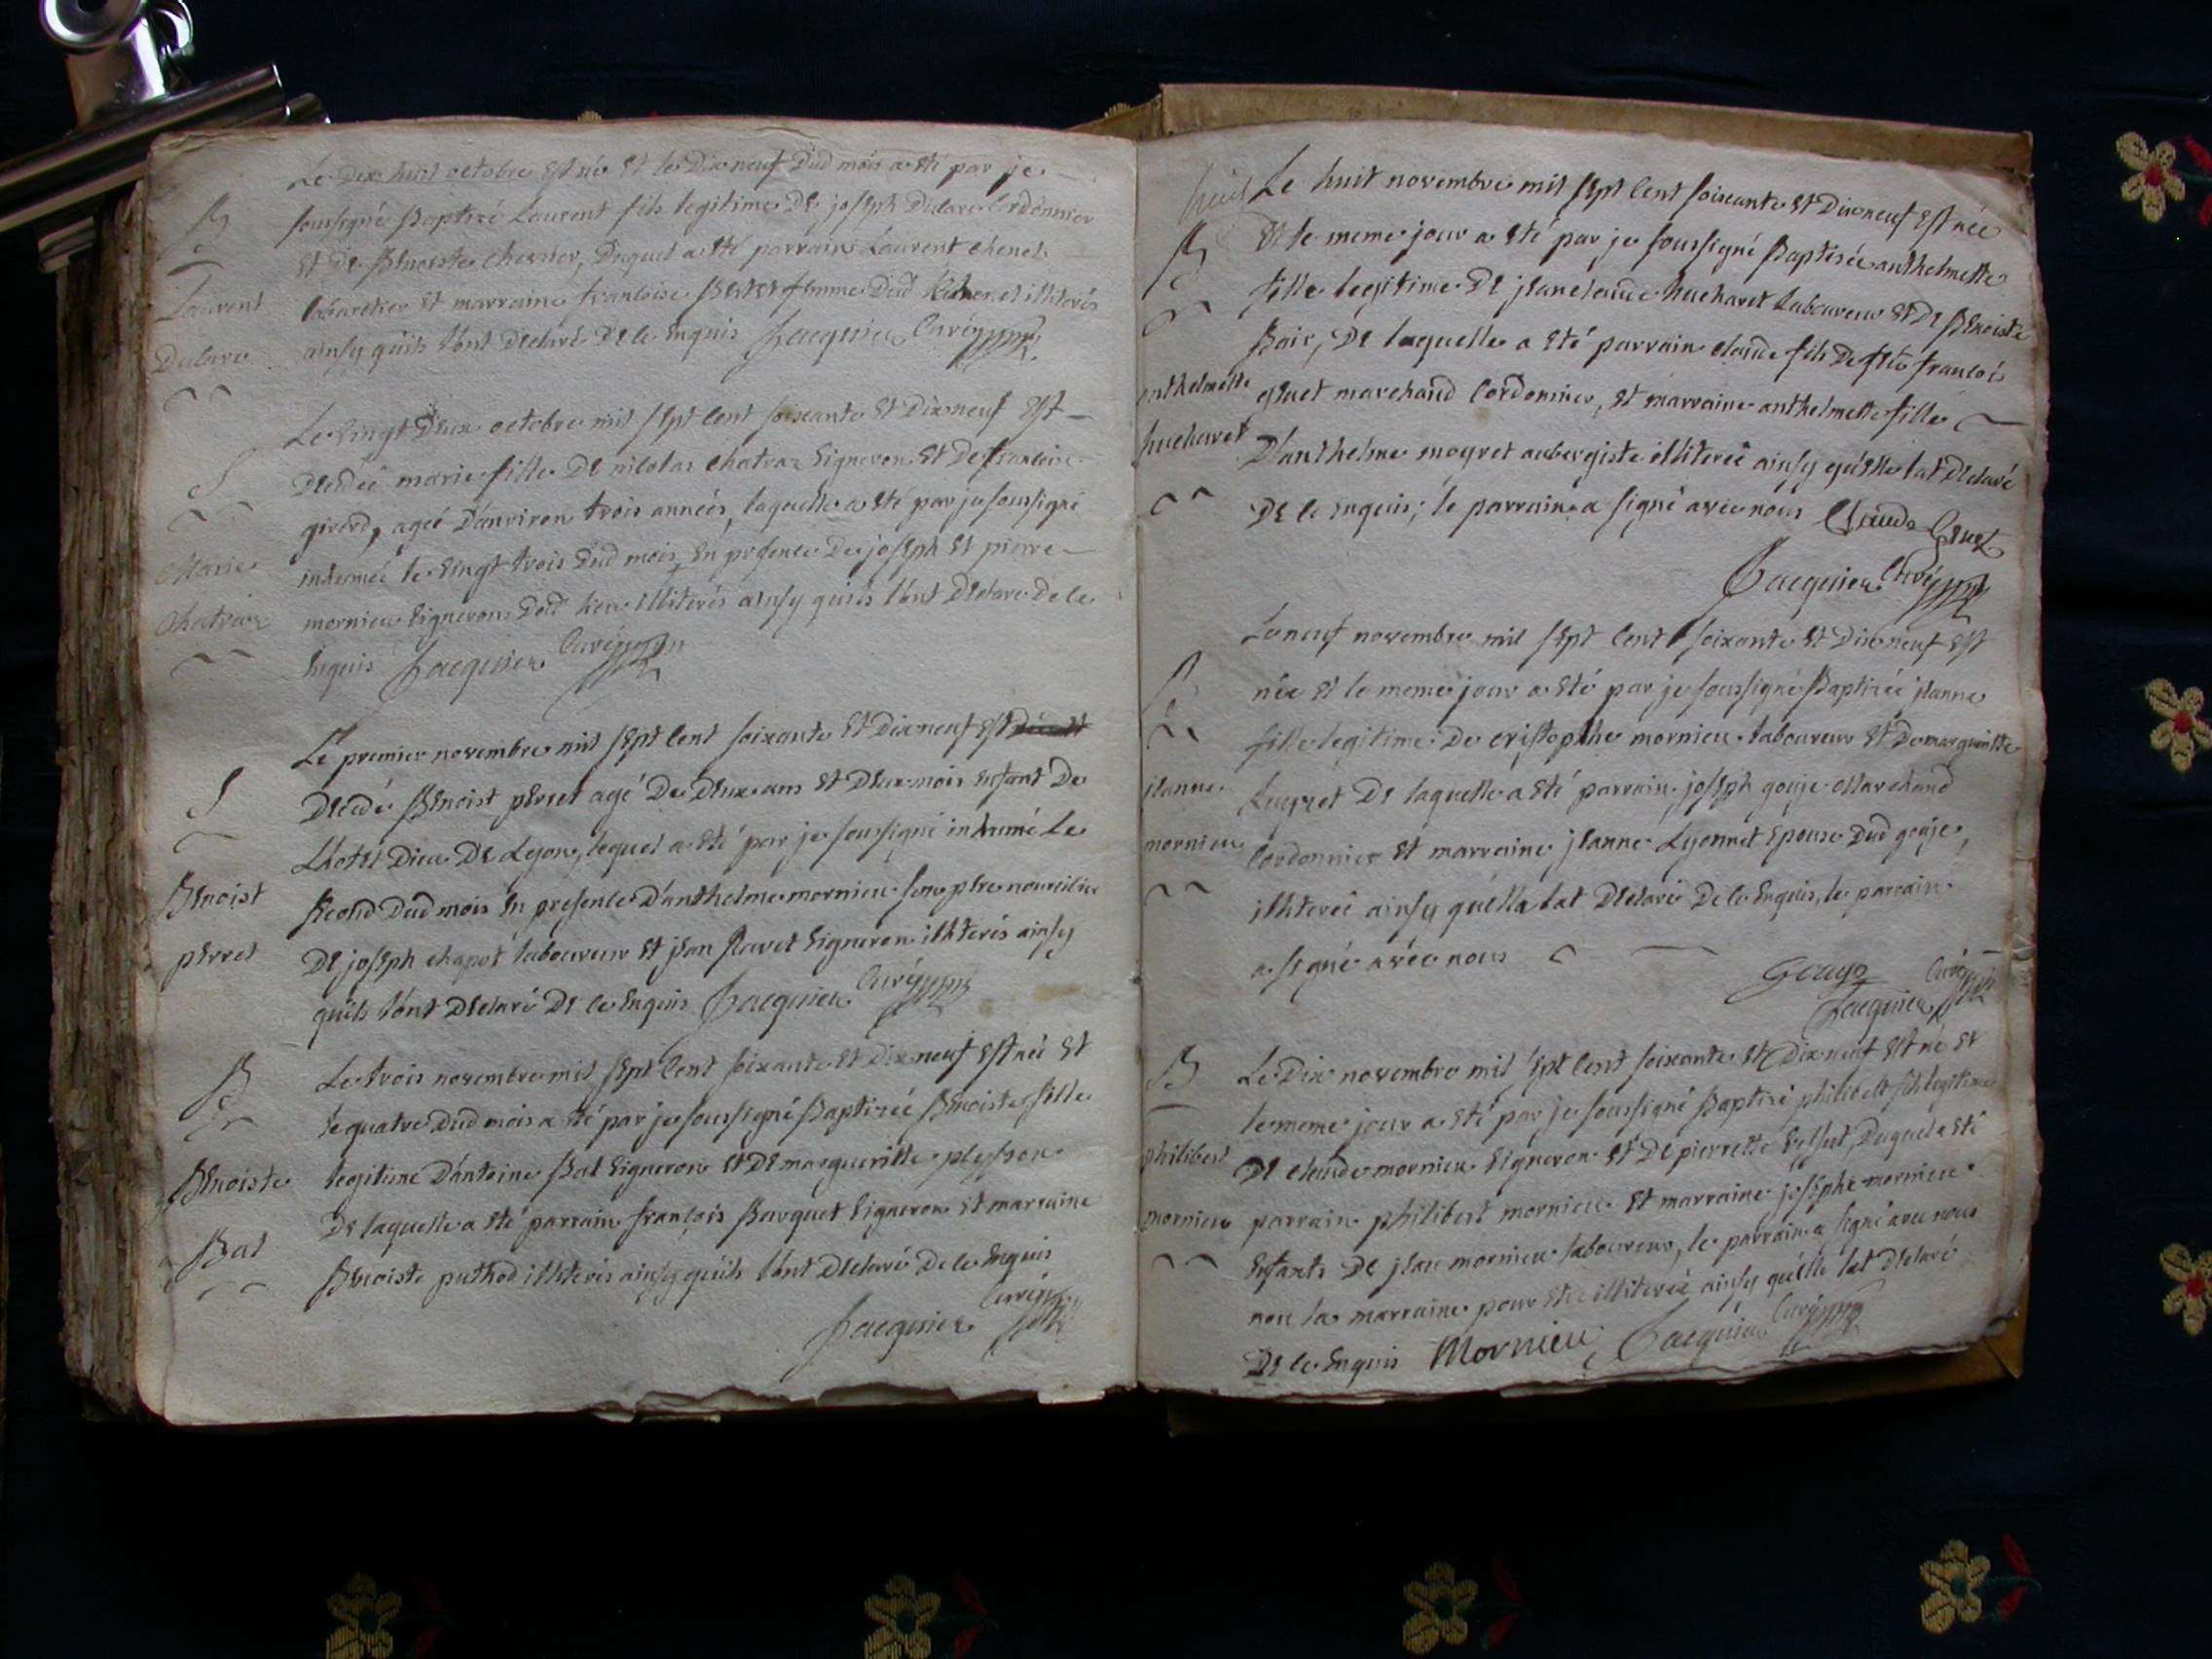 Le dix huit octobre est né et le dix neuf dud mois a eté par je
B soussigné baptizé Laurent fils legitime de joseph Delare cordonnier
et de Benoiste, duquel a eté parrain Laurent chenel
Laurent cabaretier et marraine francoise femme dud illiterés
Delare ainsy quils l'ont declaré de ce enquis Jacquier Curé
Le vingt deux octobre mil sept cent soixante et dix neuf est
S decedée marie fille de nicolas chatraz vigneron et de francoise
girerd, ageé d'anviron trois années, laquelle a eté par je soussigné
Marie inhumée le vingt trois dud mois, en presence de joseph et pierre
Chatraz mornieu vignerons dud lieu illiterés ainsy quils l'ont declaré de ce
enquis Jacquier Curé
Le premier novembre mil sept cent soixante et dix neuf est
S decedé Benoist perret agé de deux ans et deux mois enfant de
L'hotel Dieu de Lyon, lequel a eté par je soussigné inhumé Le
Benoist second dud mois en presence d'anthelme mornieu son pere nourcilier
perret de joseph chapot laboureur et jean Ravet vigneron illiterés ainsy
quils l'ont declaré de ce enquis Jacquier Curé
B Le trois novembre mil sept cent soixante et dix neuf est née et
le quatre dud mois a eté par je soussigné Baptizée Benoiste fille
Benoiste legitime d'antoine Bal vigneron et de margueritte plesson
Bal de laquelle a eté parrain francois Barquet vigneron et marraine
Benoiste puthod illiterés ainsy quils l'ont declaré de ce enquis
Jacquier Curé
huit Le huit novembre mil sept cent soixante et dix neuf est née
B et le meme jour a eté par je soussigné Baptisée anthelmette
fille legitime de jean claude hucharet Laboureur et de Benoiste
Bair, de laquelle a eté parrain claude fils de feu francois
anthelmette genet marchand cordonnier, et marraine anthelmette fille
hucharet D'anthelme moyret aubergiste illiterée ainsy quelle l'at declaré
de ce enquis; le parrain a signé avec nous Claude Genet
Jacquier Curé
Le neuf novembre mil sept cent soixante et dix neuf est
B née et le meme jour a eté par je soussigné Baptizée jeanne
fille legitime de cristophe mornieu laboureur et de margueritte
jeanne de laquelle a eté parrain joseph gouje Marchand
mornieu cordonnier et marraine jeanne Lyonnet epouse dud gouje,
illiterée ainsy quella l'at declaré de ce enquis, le parrain
a signé avec nous
Gouge Jacquier Curé
B Le dix novembre mil sept cent soixante et dix neuf est né et
le meme jour a eté par je soussigné Baptizé philibert fils legitime
philibert de claude mornieu vigneron et de pierrette, duquel a eté
mornieu parrain philibert mornieu et marraine josephe mornieu
enfants de jean mornieu laboureur, le parrain a signé avec nous
non la marraine pour etre illiterée ainsy quelle l'at declaré
de ce enquis Mornieu Jacquier Curé